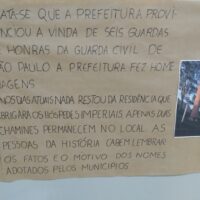 ATA-SE QUE A PREFEITURA PROVI-
ENCIOU A VINDA DE SEIS GUARDAS
E HONRAS DA GUARDA CIVIL DE
ÃO PAULO A PREFEITURA FEZ HOME
AGENS
NOS DIAS ATUAIS NADA RESTOU DA RESIDÊNCIA QUE
ABRIGARA OS HÓSPEDES IMPERIAIS APENAS DUAS
CHAMINÉS PERMANECEM NO LOCAL AS
PESSOAS DA HISTÓRIA CABEM LEMBRAR
OS FATOS E O MOTIVO DOS NOMES
ADOTADOS PELOS MUNICÍPIOS